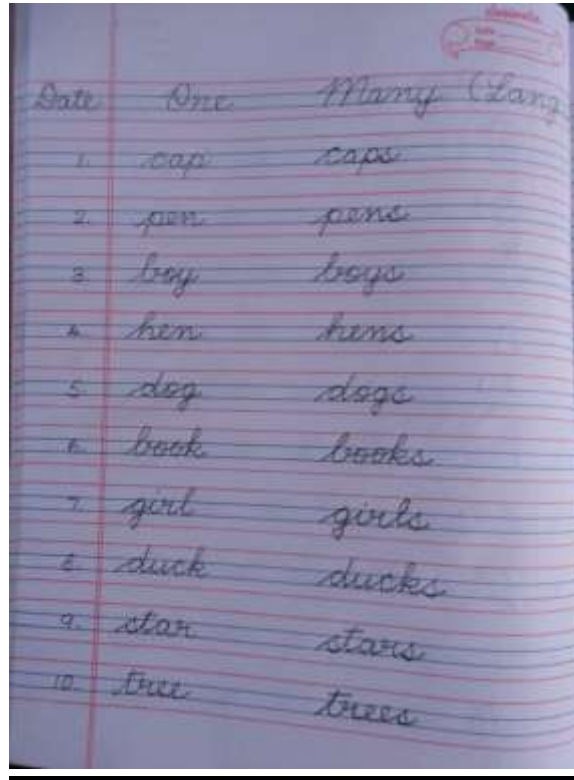 Date One Many (Lang
1. cap caps
2. pen pens
3. boy boys
4. hen hens
5. dog dogs
6. book books
7. girl girls
8. duck ducks
9. star stars
10. tree trees